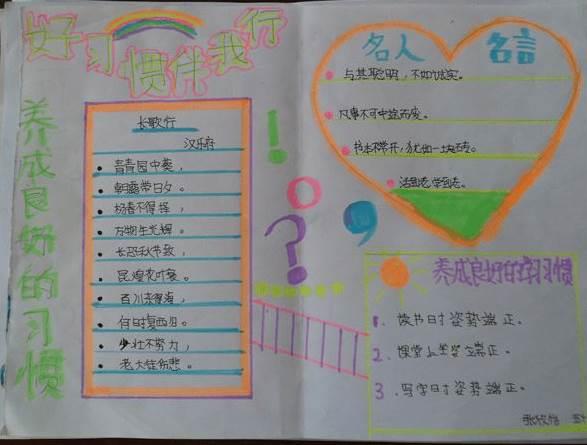 好习惯伴我行
养成良好的习惯
长歌行
汉乐府
青青园中葵，
朝露带日夕。
杨春不得择，
万物生光辉。
长恐秋节致，
昆煌花叶衰。
百川东到海，
何时复西归。
少壮不努力，
老大徒伤悲。
！
？
名人 名言
与其聪明，不如诚实。
凡事不可中途而废。
书本不常开，犹如一块砖。
活到老，学到老。
养成良好的学习惯
1、读书时姿势端正。
2、课堂上坐姿端正。
3、写字时姿势端正。